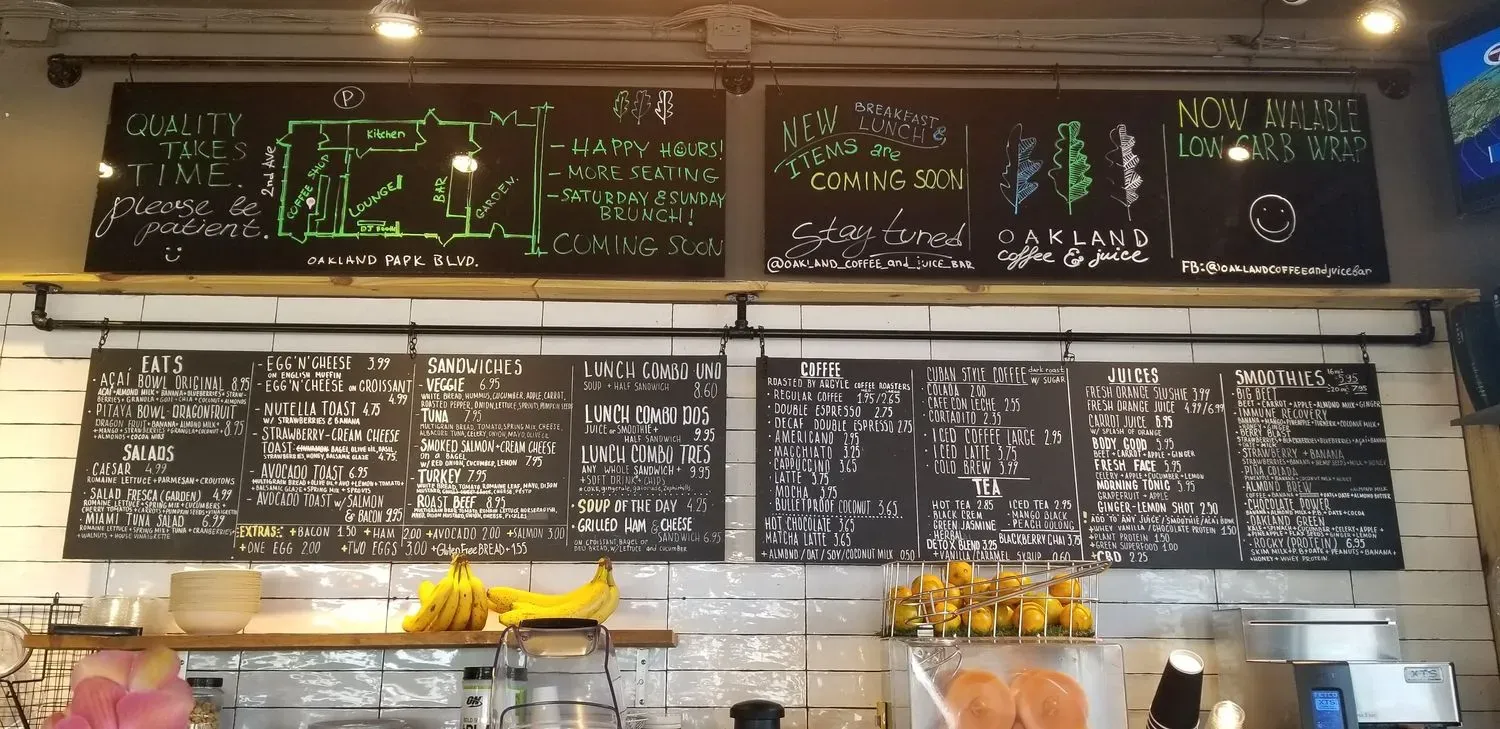 QUALITY
TAKES
TIME.
please be
patient.
P
2nd Ave
COFFEE SHOP
Kitchen
LOUNGE
DJ Booth
BAR
GARDEN
OAKLAND PARK BLVD.
- HAPPY HOURS!
- MORE SEATING
- SATURDAY & SUNDAY
BRUNCH!
COMING SOON
NEW BREAKFAST
LUNCH &
ITEMS are
COMING SOON
stay tuned
@OAKLAND_COFFEE_and_juice_BAR
OAKLAND
coffee & juice
NOW AVALABLE
LOW CARB WRAP
FB:@OAKLANDCOFFEEandjuicebar
EATS
AÇAÍ BOWL ORIGINAL 8.95
AÇAÍ + ALMOND MILK + BANANA + BLUEBERRIES + STRAW-
BERRIES + GRANOLA + GOJI + CHIA + COCONUT + ALMONDS
PITAYA BOWL-DRAGONFRUIT
DRAGON FRUIT + BANANA + ALMOND MILK
+ MANGO + STRAWBERRIES + GRANOLA + COCONUT 8.95
+ ALMONDS + COCOA NIBS
SALADS
CAESAR 4.99
ROMAINE LETTUCE + PARMESAN + CROUTONS
SALAD FRESCA (GARDEN) 4.99
ROMAINE LETTUCE + SPRING MIX + CUCUMBERS +
CHERRY TOMATOES + CARROTS + PUMPKIN SEEDS + VINAIGRETTE
MIAMI TUNA SALAD 6.99
ROMAINE LETTUCE + SPRING MIX + TUNA + CRANBERRY
+ WALNUTS + HOUSE VINAIGRETTE
- EGG'N'CHEESE 3.99
ON ENGLISH MUFFIN
- EGG'N'CHEESE ON CROISSANT
4.99
- NUTELLA TOAST 4.75
W/ STRAWBERRIES & BANANA
- STRAWBERRY-CREAM CHEESE
TOAST BAGEL, OLIVE OIL, BASIL,
STRAWBERRIES, HONEY, BALSAMIC GLAZE 4.75
- AVOCADO TOAST 6.95
MULTIGRAIN BREAD + OLIVE OIL + AVO + LEMON + TOMATO +
BALSAMIC GLAZE + SPRING MIX + SPROUTS
- AVOCADO TOAST W/ SALMON
& BACON 9.95
EXTRAS: + BACON 1.50 + HAM 2.00 + AVOCADO 2.00 + SALMON 3.00
+ ONE EGG 2.00 + TWO EGGS 3.00 + Gluten Free BREAD + 1.55
SANDWICHES
- VEGGIE 6.95
WHITE BREAD, HUMMUS, CUCUMBER, APPLE, CARROT,
ROASTED PEPPER, ONION, LETTUCE, SPROUTS, PUMPKIN SEEDS
TUNA 7.95
MULTIGRAIN BREAD, TOMATO, SPRING MIX, CHEESE,
ALBACORE TUNA, CELERY, ONION, MAYO, OLIVE OIL
SMOKED SALMON + CREAM CHEESE
on a BAGEL
W/ RED ONION, CUCUMBER, LEMON 7.95
TURKEY 7.95
WHITE BREAD, TOMATO, ROMAINE LEAF, MAYO, DIJON
ROAST BEEF 8.95
LUNCH COMBO UNO
SOUP + HALF SANDWICH
8.60
LUNCH COMBO DOS
JUICE or SMOOTHIE +
HALF SANDWICH 9.95
LUNCH COMBO TRES
ANY WHOLE SANDWICH + 9.95
+ SOFT DRINK + CHIPS
SOUP OF THE DAY 4.25
- GRILLED HAM & CHEESE
SANDWICH 6.95
ON CROISSANT, BAGEL or
DELI BREAD, W/ LETTUCE and CUCUMBER
COFFEE
ROASTED BY ARGYLE COFFEE ROASTERS
REGULAR COFFEE 1.95/2.65
DOUBLE ESPRESSO 2.75
DECAF DOUBLE ESPRESSO 2.75
AMERICANO 2.95
MACCHIATO 3.25
CAPPUCCINO 3.65
LATTE 3.75
MOCHA 3.95
BULLETPROOF COCONUT 3.65
HOT CHOCOLATE 3.65
MATCHA LATTE 3.65
+ ALMOND / OAT / SOY / COCONUT MILK 0.50
CUBAN STYLE COFFEE dark roast
W/ SUGAR
COLADA 2.00
CAFE CON LECHE 2.55
CORTADITO 2.35
ICED COFFEE LARGE 2.95
ICED LATTE 3.75
COLD BREW 3.99
TEA
HOT TEA 2.85
- BLACK CREM
- GREEN JASMINE
- HERBAL
DETOX BLEND 3.25
ICED TEA 2.95
- MANGO BLACK
- PEACH OOLONG
BLACKBERRY CHAI 3.75
+ VANILLA / CARAMEL SYRUP 0.60
JUICES
FRESH ORANGE SLUSHIE 3.99
FRESH ORANGE JUICE 4.99/6.99
CARROT JUICE 6.95
W/ SPLASH OF ORANGE
BODY GOOD 5.95
BEET + CARROT + APPLE + GINGER
FRESH FACE 5.95
CELERY + APPLE + CUCUMBER + LEMON
MORNING TONIG 5.95
GRAPEFRUIT + APPLE
GINGER-LEMON SHOT 2.50
ADD TO ANY JUICE / SMOOTHIE / AÇAÍ BOWL
+ WHEY VANILLA / CHOCOLATE PROTEIN 1.50
+ PLANT PROTEIN 1.50
+ GREEN SUPERFOOD 1.00
+ CBD 2.25
SMOOTHIES 16oz 5.95
BIG BEET
BEET + CARROT + APPLE + ALMOND MILK + GINGER
IMMUNE RECOVERY
BANANA + MANGO + PINEAPPLE + TURMERIC + COCONUT MILK +
STRAWBERRY + BANANA
PINA COLADA
ALMOND BREW
CHOCOLATE POWER
OAKLAND GREEN
KALE + SPINACH + CUCUMBER + CELERY + APPLE +
ROCKY (PROTEIN) 6.95
SKIM MILK + P.B + DATE + PEANUTS + BANANA +
+ HONEY + WHEY PROTEIN
XTS